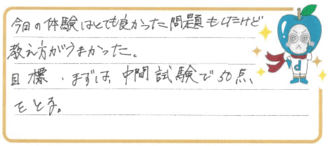 今日の体験はとても良かった問題もしたけど
教え方がうまかった。
目標・まずは、中間試験で50点
をとる。
d